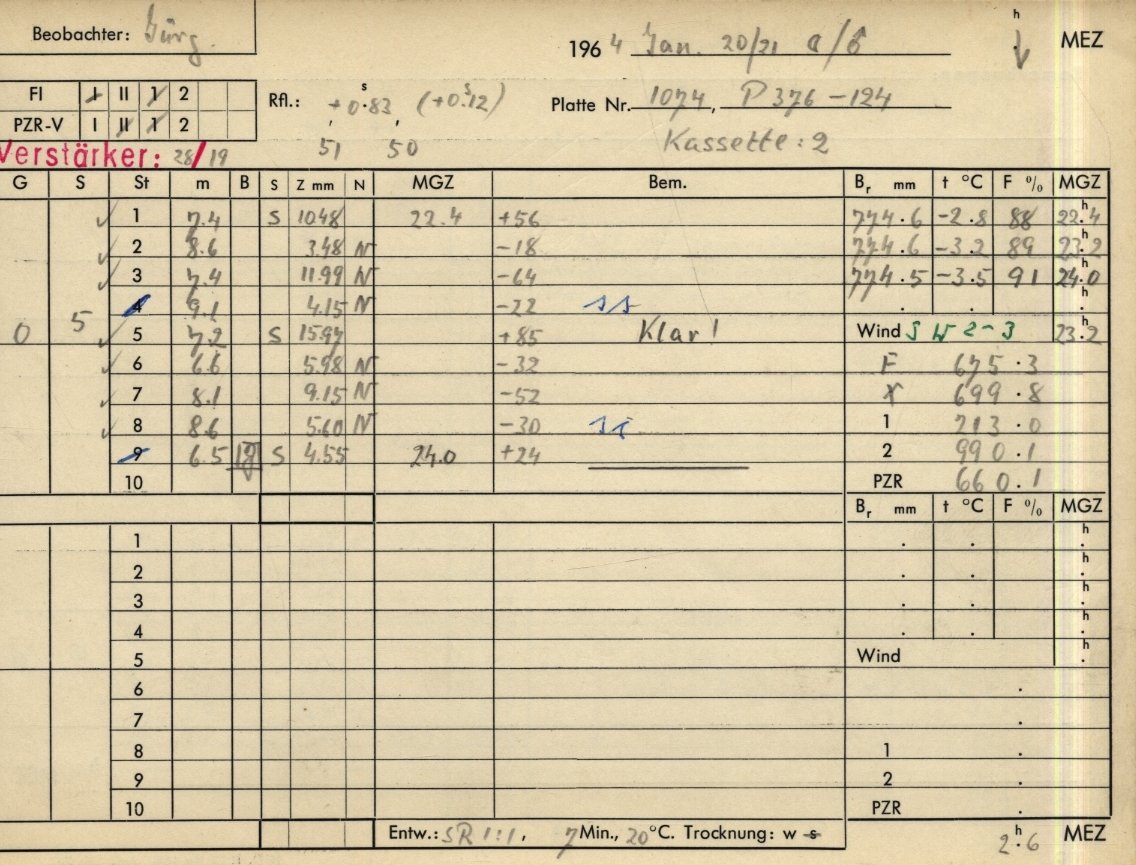 Beobachter: Jürg.
1964 Jan. 20/21 h MEZ
FI I II 1 2
PZR-V I II 1 2
Rfl.: +0.83 s (+0.12 s)
51 50
Platte Nr. 1074, P 376-124
Kassette: 2
Verstärker: 28/19
G S St m B S Z mm N MGZ Bem. Br mm t °C F % MGZ
1 7.4 S 10.48 22.4 +56 774.6 -2.8 88 22.4 h
2 8.6 3.48 N -18 774.6 -3.2 89 23.2 h
3 7.4 11.99 N -64 774.5 -3.5 91 24.0 h
4 9.1 4.15 N -22 . . h
0 5 5 7.2 S 15.97 +85 Klar! Wind SW 2-3 23.2 h
6 6.6 5.98 N -32 F 675.3
7 8.1 9.15 N -52 X 699.8
8 8.6 5.60 N -30 1 713.0
9 6.5 S 4.55 24.0 +24 2 990.1
10 PZR 660.1
Br mm t °C F % MGZ
1 . . h
2 . . h
3 . . h
4 . . h
5 Wind . h
6 .
7 .
8 1 .
9 2 .
10 PZR .
Entw.: SR 1:1, 7 Min., 20 °C. Trocknung: w s 2.6 h MEZ